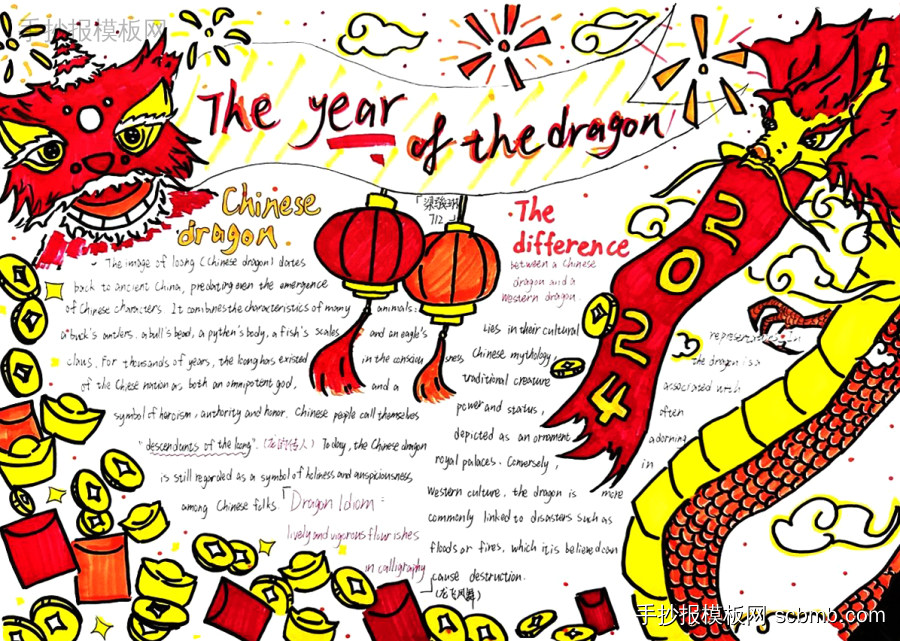 手抄报模板网
The year of the dragon
「梁 712」
Chinese dragon.
The image of loong (Chinese dragon) dates
back to ancient China, predating even the emergence
of Chinese characters. It combines the characteristics of many animals:
a buck's antlers, a bull's head, a python's body, a fish's scales and an eagle's
claws. For thousands of years, the loong has existed in the conscious
of the Chinese nation as both an omnipotent god, and a
symbol of heroism, authority and honor. Chinese people call themselves
"descendants of the loong". (龙的传人) Today, the Chinese dragon
is still regarded as a symbol of holiness and auspiciousness
among Chinese folks.
「Dragon Idiom:
lively and vigorous flourishes
in calligraphy」
(龙飞凤舞)
The difference
between a Chinese
dragon and a
Western dragon.
lies in their cultural representation in
Chinese mythology, the dragon is a
traditional creature associated with
power and status, often
depicted as an ornament adorning
royal palaces. Conversely, in
Western culture, the dragon is more
commonly linked to disasters such as
floods or fires, which it is believed can
cause destruction.
2024
手抄报模板网 scbmb.com